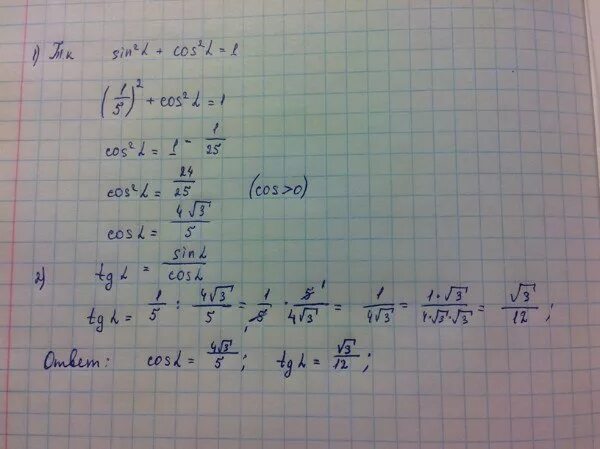 1) Тк sin²α + cos²α = 1
(1/5)² + cos²α = 1
cos²α = 1 - 1/25
cos²α = 24/25 (cos>0)
cosα = 4√3/5
2) tgα = sinα/cosα
tgα = 1/5 : 4√3/5 = 1/5 · 5/4√3 = 1/4√3 = 1·√3/4·√3·√3 = √3/12;
Ответ: cosα = 4√3/5; tgα = √3/12;